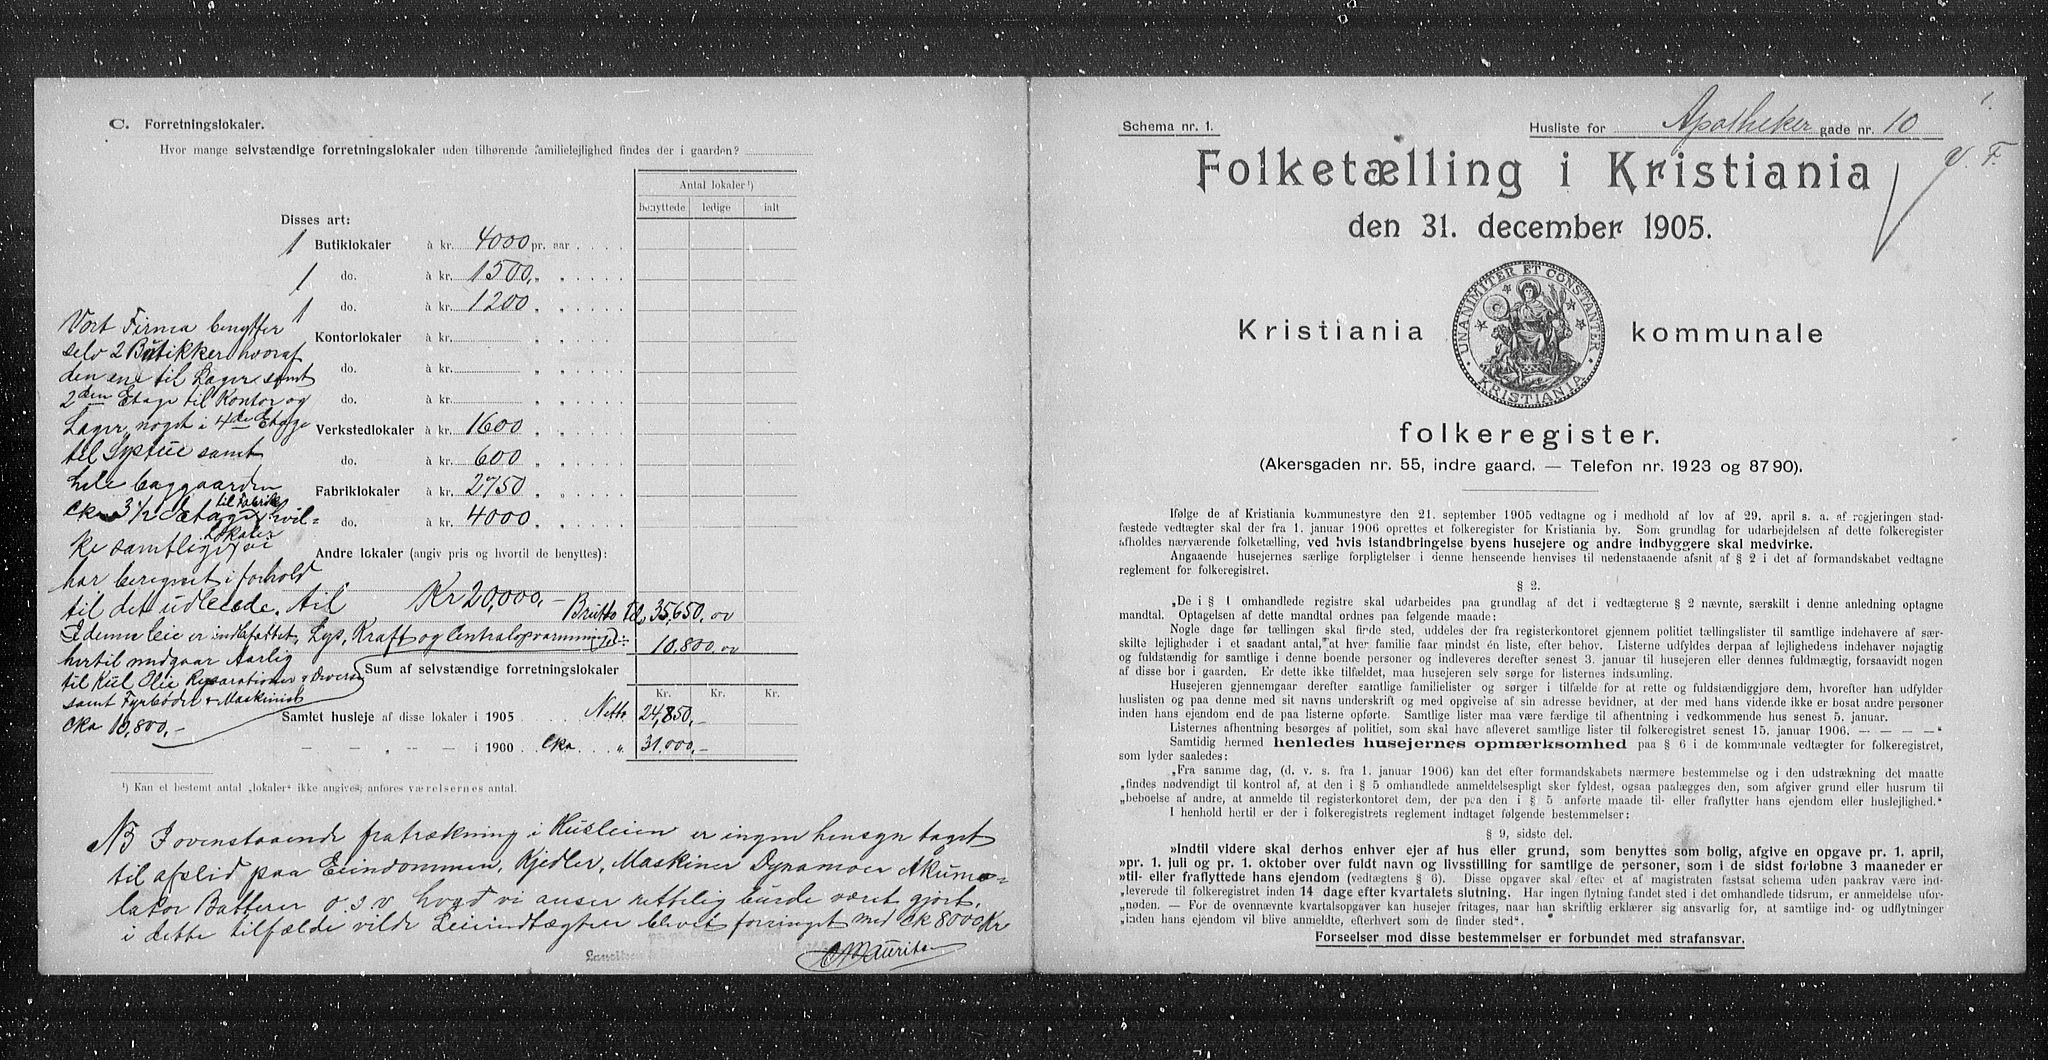 C. Forretningslokaler.
Hvor mange selvstændige forretningslokaler uden tilhørende familielejlighed findes der i gaarden?
Antal lokaler ¹)
benyttede ledige ialt
Disses art:
1 Butiklokaler à kr. 4000 pr. aar
1 do. à kr. 1500, „ „
1 do. à kr. 1200 „ „
Kontorlokaler à kr. „ „
do. à kr. „ „
do. à kr. „ „
Verkstedlokaler à kr. 1600 „ „
do. à kr. 600 „ „
Fabriklokaler à kr. 2750 „ „
do. à kr. 4000 „ „
Andre lokaler (angiv pris og hvortil de benyttes):
Vort Firma benytter
selv 2 Butikker hvoraf
den ene til Lager samt
2den Etage til Kontor og
Lager, noget i 4de Etage
til Systue samt
hele baggaarden
cka 3 1/2 Etage til Fabrik
Lokaler hvil-
ke samtlige vi
har beregnet i forhold
til det udleiede, til Kr 20,000,- Brutto 35,650,00
I denne leie er indbefattet Lys, Kraft og Centralopvarmning 10,800,00
hertil medgaar Aarlig
til Kul Olie Reparationer & Diverse
samt Fyrbøder & Maskinist
cka 10,800,-
Sum af selvstændige forretningslokaler
Kr. Kr. Kr.
Samlet husleje af disse lokaler i 1905 Netto 24,850,-
— — „ — — i 1900 Cka „ 31,000,-
¹) Kan et bestemt antal „lokaler“ ikke angives, anføres værelsernes antal.
NB I ovenstaaende fratrækning i Husleien er ingen hensyn taget
til afslid paa Eiendommen, Kjedler, Maskiner Dynamoer Akumu-
lator Batterier o.s.v hvad vi anser rettelig burde været gjort,
i dette tilfælde vilde Leieindtægten blevet forringet med ck 8000 Kr
Schema nr. 1.
Husliste for Apotheker gade nr. 10
1.
V. F.
Folketælling i Kristiania
den 31. december 1905.
Kristiania kommunale
UNANIMITER ET CONSTANTER
KRISTIANIA
folkeregister.
(Akersgaden nr. 55, indre gaard. — Telefon nr. 1923 og 8790).
Ifølge de af Kristiania kommunestyre den 21. september 1905 vedtagne og i medhold af lov af 29. april s. a. af regjeringen stad-
fæstede vedtægter skal der fra 1. januar 1906 oprettes et folkeregister for Kristiania by. Som grundlag for udarbejdelsen af dette folkeregister
afholdes nærværende folketælling, ved hvis istandbringelse byens husejere og andre indbyggere skal medvirke.
Angaaende husejernes særlige forpligtelser i denne henseende henvises til nedenstaaende afsnit af § 2 i det af formandskabet vedtagne
reglement for folkeregistret.
§ 2.
„De i § 1 omhandlede registre skal udarbeides paa grundlag af det i vedtægterne § 2 nævnte, særskilt i denne anledning optagne
mandtal. Optagelsen af dette mandtal ordnes paa følgende maade:
Nogle dage før tællingen skal finde sted, uddeles der fra registerkontoret gjennem politiet tællingslister til samtlige indehavere af sær-
skilte lejligheder i et saadant antal, at hver familie faar mindst én liste, efter behov. Listerne udfyldes derpaa af lejlighedens indehaver nøjagtig
og fuldstændig for samtlige i denne boende personer og indleveres derefter senest 3. januar til husejeren eller dennes fuldmægtig, forsaavidt nogen
af disse bor i gaarden. Er dette ikke tilfældet, maa husejeren selv sørge for listernes indsamling.
Husejeren gjennemgaar derefter samtlige familielister og sørger i tilfælde for at rette og fuldstændiggjøre dem, hvorefter han udfylder
huslisten og paa denne med sit navns underskrift og med opgivelse af sin adresse bevidner, at der med hans vidende ikke er bosat andre personer
inden hans ejendom end de paa listerne opførte. Samtlige lister maa være færdige til afhentning i vedkommende hus senest 5. januar.
Listernes afhentning besørges af politiet, som skal have afleveret samtlige lister til folkeregistret senest 15. januar 1906. — — — — —“
Samtidig hermed henledes husejernes opmærksomhed paa § 6 i de kommunale vedtægter for folkeregistret,
som lyder saaledes:
„Fra samme dag, (d. v. s. fra 1. januar 1906) kan det efter formandskabets nærmere bestemmelse og i den udstrækning det maatte
„findes nødvendigt til kontrol af, at den i § 5 omhandlede anmeldelsespligt sker fyldest, ogsaa paalægges den, som afgiver grund eller husrum til
„beboelse af andre, at anmelde til registerkontoret dem, der paa den i § 5 anførte maade til- eller fraflytter hans ejendom eller huslejlighed.“
I henhold hertil er der i folkeregistrets reglement indtaget følgende bestemmelser:
§ 9, sidste del.
»Indtil videre skal derhos enhver ejer af hus eller grund, som benyttes som bolig, afgive en opgave pr. 1. april,
»pr. 1. juli og pr. 1. oktober over fuldt navn og livsstilling for samtlige de personer, som i de sidst forløbne 3 maaneder er
»til- eller fraflyttede hans ejendom (vedtægtens § 6). Disse opgaver skal efter et af magistraten fastsat schema uden paakrav være ind-
„leverede til folkeregistret inden 14 dage efter kvartalets slutning. Har ingen flytning fundet sted i det omhandlede tidsrum, er anmeldelse ufor-
„nøden. — For de ovennævnte kvartalsopgaver kan husejer fritages, naar han skriftlig erklærer sig ansvarlig for, at samtlige ind- og udflytninger
„inden hans ejendom vil blive anmeldte, efterhvert som de finder sted“.
Forseelser mod disse bestemmelser er forbundet med strafansvar.